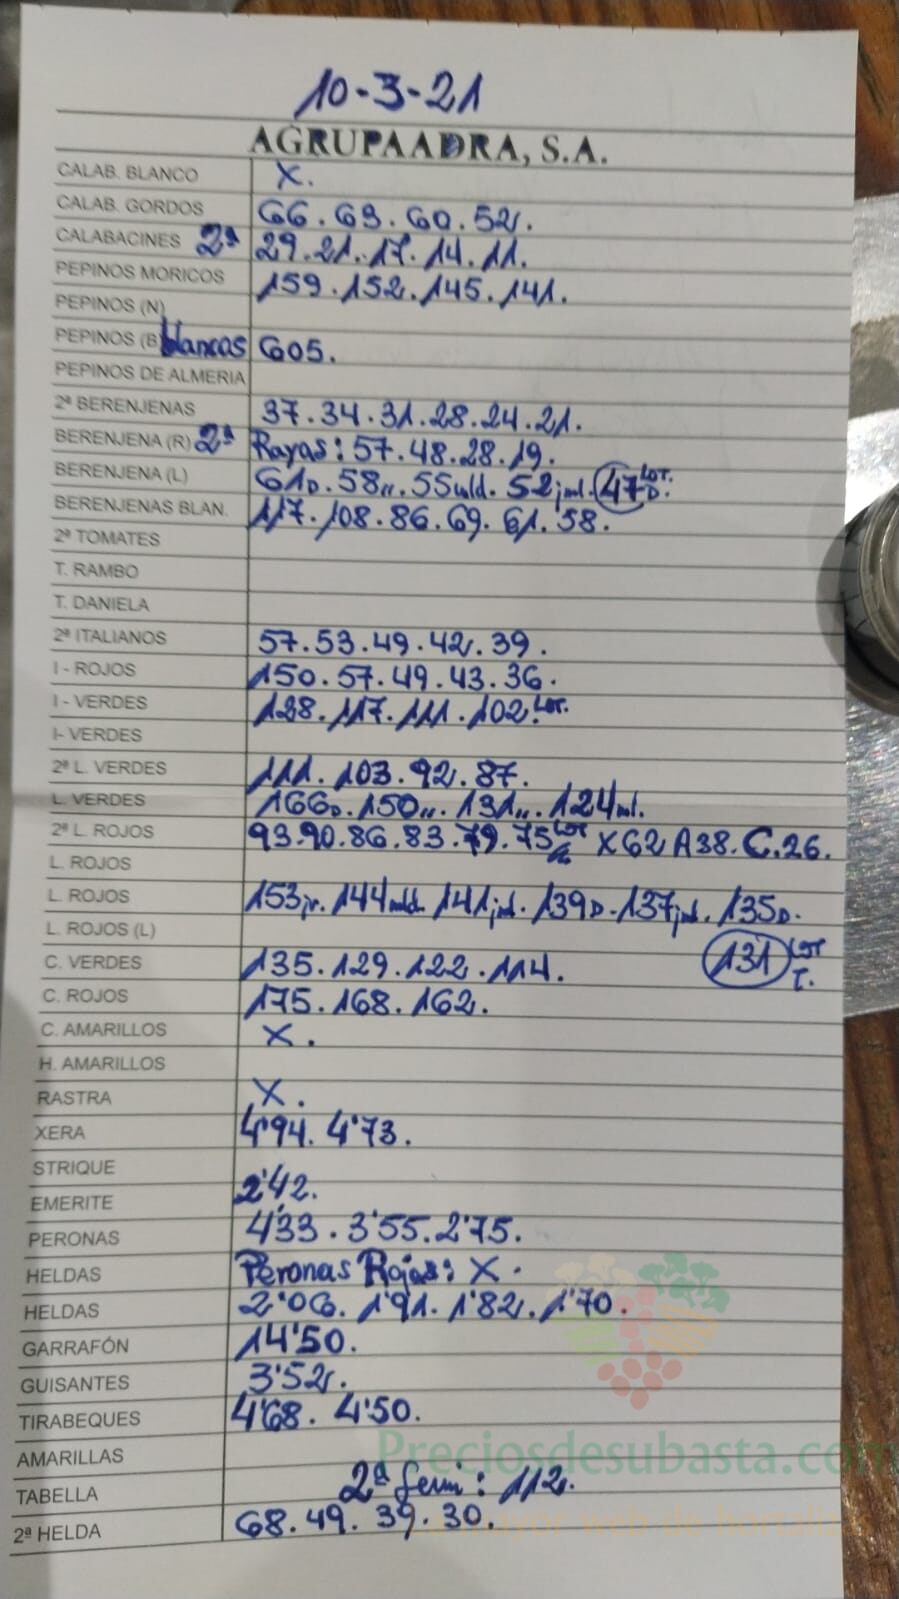 10-3-21
AGRUPAADRA, S.A.
CALAB. BLANCO X.
CALAB. GORDOS 66.63.60.52.
CALABACINES 2ª 29.21.17.14.11.
PEPINOS MORICOS 159.152.145.141.
PEPINOS (N)
PEPINOS (B blancos 605.
PEPINOS DE ALMERIA
2ª BERENJENAS 37.34.31.28.24.21.
BERENJENA (R) 2ª Rayas: 57.48.28.19.
BERENJENA (L) 61D.58,,.55mld.52jml.47 LOT. D.
BERENJENAS BLAN. 117.108.86.69.61.58.
2ª TOMATES
T. RAMBO
T. DANIELA
2ª ITALIANOS 57.53.49.42.39.
I - ROJOS 150.57.49.43.36.
I - VERDES 128.117.111.102.Lot.
I- VERDES
2ª L. VERDES 111.103.92.87.
L. VERDES 166D.150,,.131,,.124ml.
2ª L. ROJOS 93.90.86.83.79.75 LOT X62 A38.C.26.
L. ROJOS
L. ROJOS 153jr.144mld.141jml.139D.137jml.135D.
L. ROJOS (L)
C. VERDES 135.129.122.114. 131 LOT T.
C. ROJOS 175.168.162.
C. AMARILLOS X.
H. AMARILLOS
RASTRA X.
XERA 4'94. 4'73.
STRIQUE
EMERITE 2'42.
PERONAS 4'33.3'55.2'75.
HELDAS Peronas Rojas: X.
HELDAS 2'06. 1'91. 1'82. 1'70.
GARRAFÓN 14'50.
GUISANTES 3'52.
TIRABEQUES 4'68. 4'50.
AMARILLAS
Preciosdesubasta.com
TABELLA 2ª semi: 112.
2ª HELDA 68.49.39.30.
mayor web de hortalizas